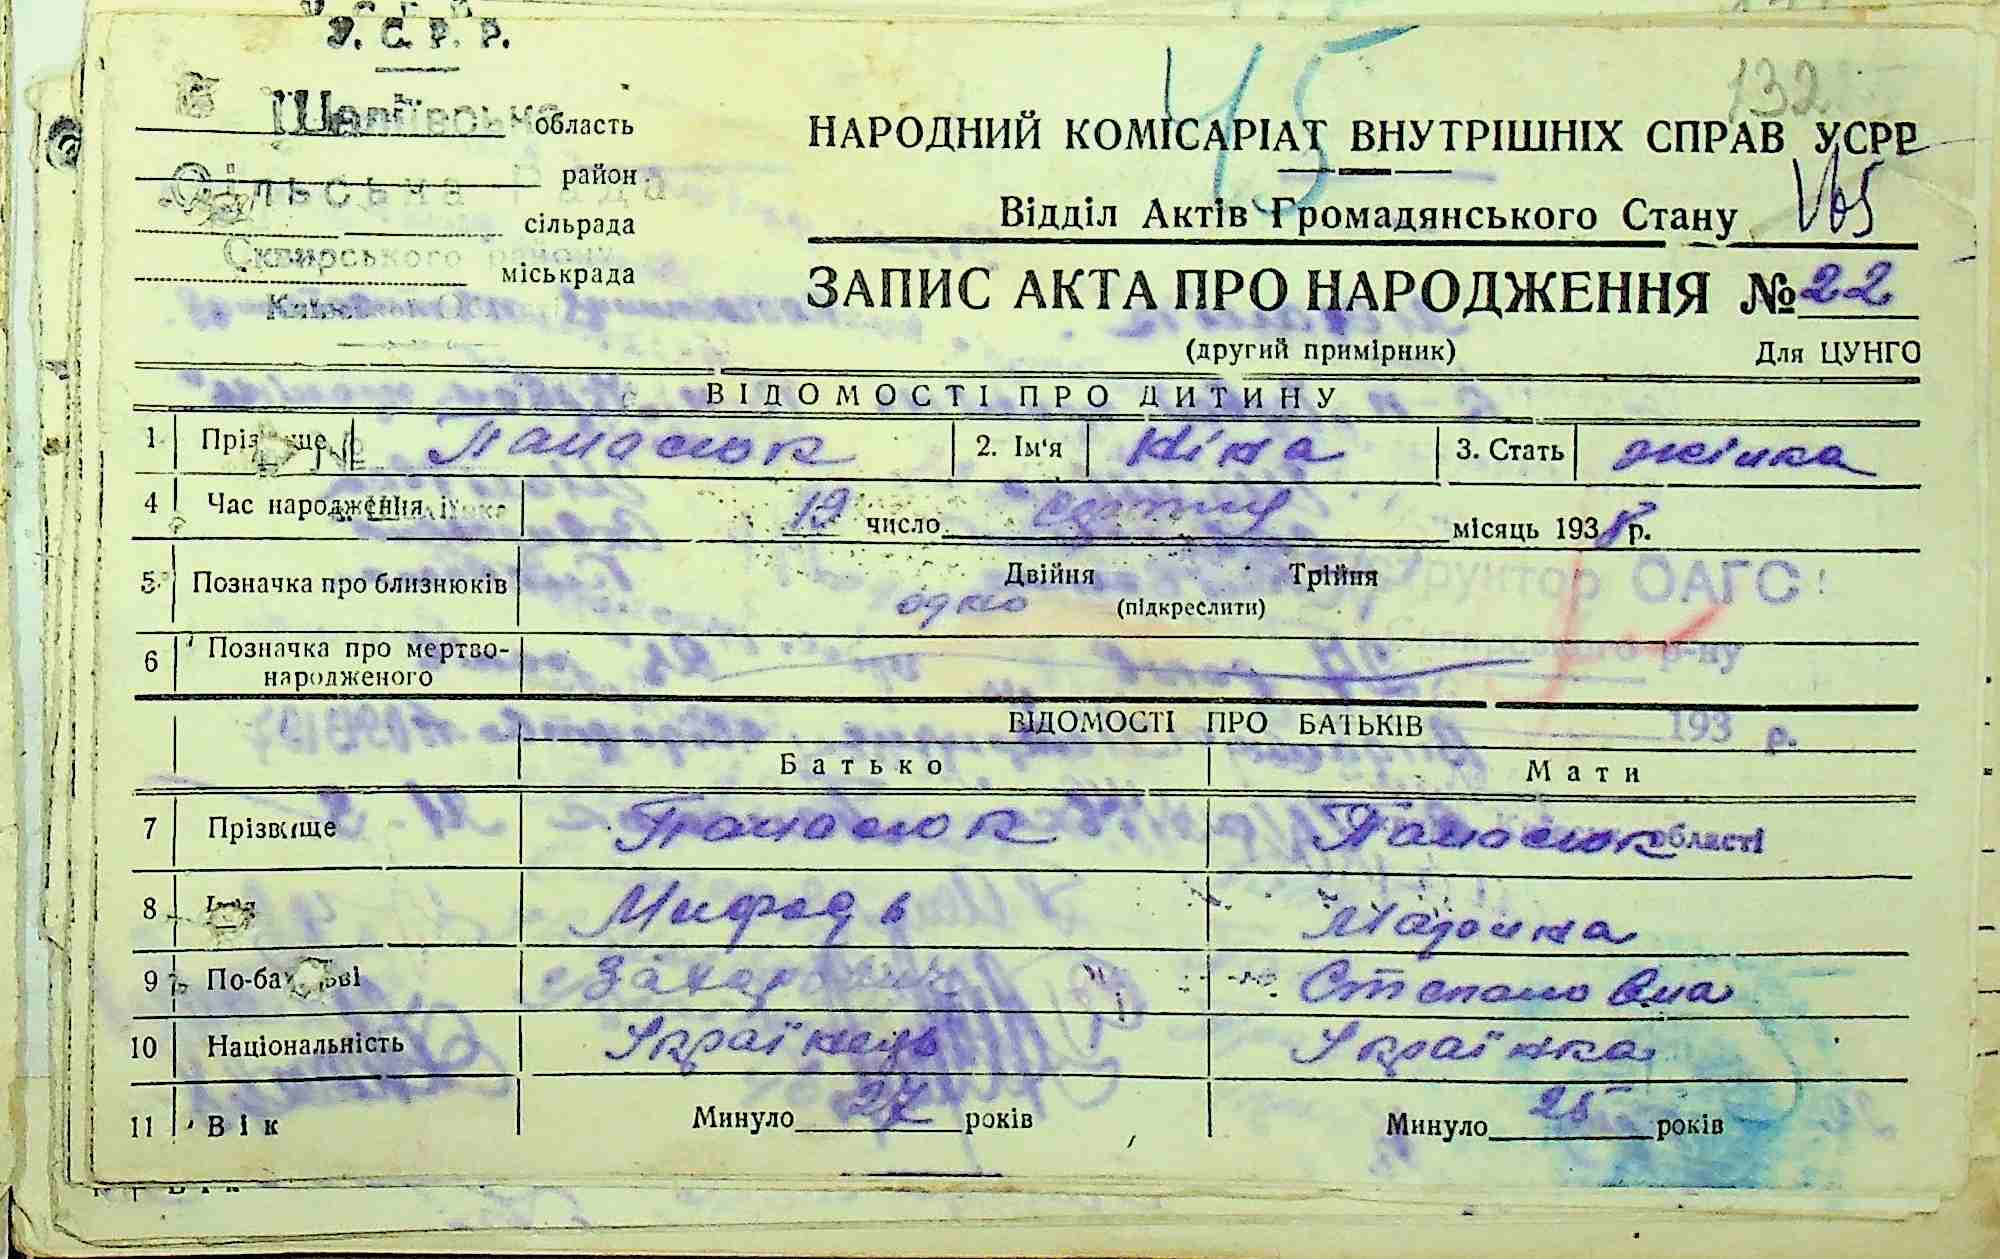 У. С. Р. Р.
45
132
Шаліївська область
Сільська Рада район
сільрада
Сквирського району
міськрада
Київської Області
НАРОДНИЙ КОМІСАРІАТ ВНУТРІШНІХ СПРАВ УСРР
Відділ Актів Громадянського Стану
ЗАПИС АКТА ПРО НАРОДЖЕННЯ № 22
(другий примірник) Для ЦУНГО
ВІДОМОСТІ ПРО ДИТИНУ
1 Прізвище Панасюк 2. Ім'я Ніна 3. Стать жінка
4 Час народження 19 число січня місяць 1938 р.
5 Позначка про близнюків Двійня Трійня
одно (підкреслити)
Інструктор ОАГС
6 Позначка про мертво-
народженого
Сквирського р-ну
ВІДОМОСТІ ПРО БАТЬКІВ
193 р.
Батько Мати
7 Прізвище Панасюк Панасюк
області
8 Ім'я Мифодь Мароина
9 По-батькові Захарович Степановна
10 Національність Українець Українка
11 Вік Минуло 27 років Минуло 25 років